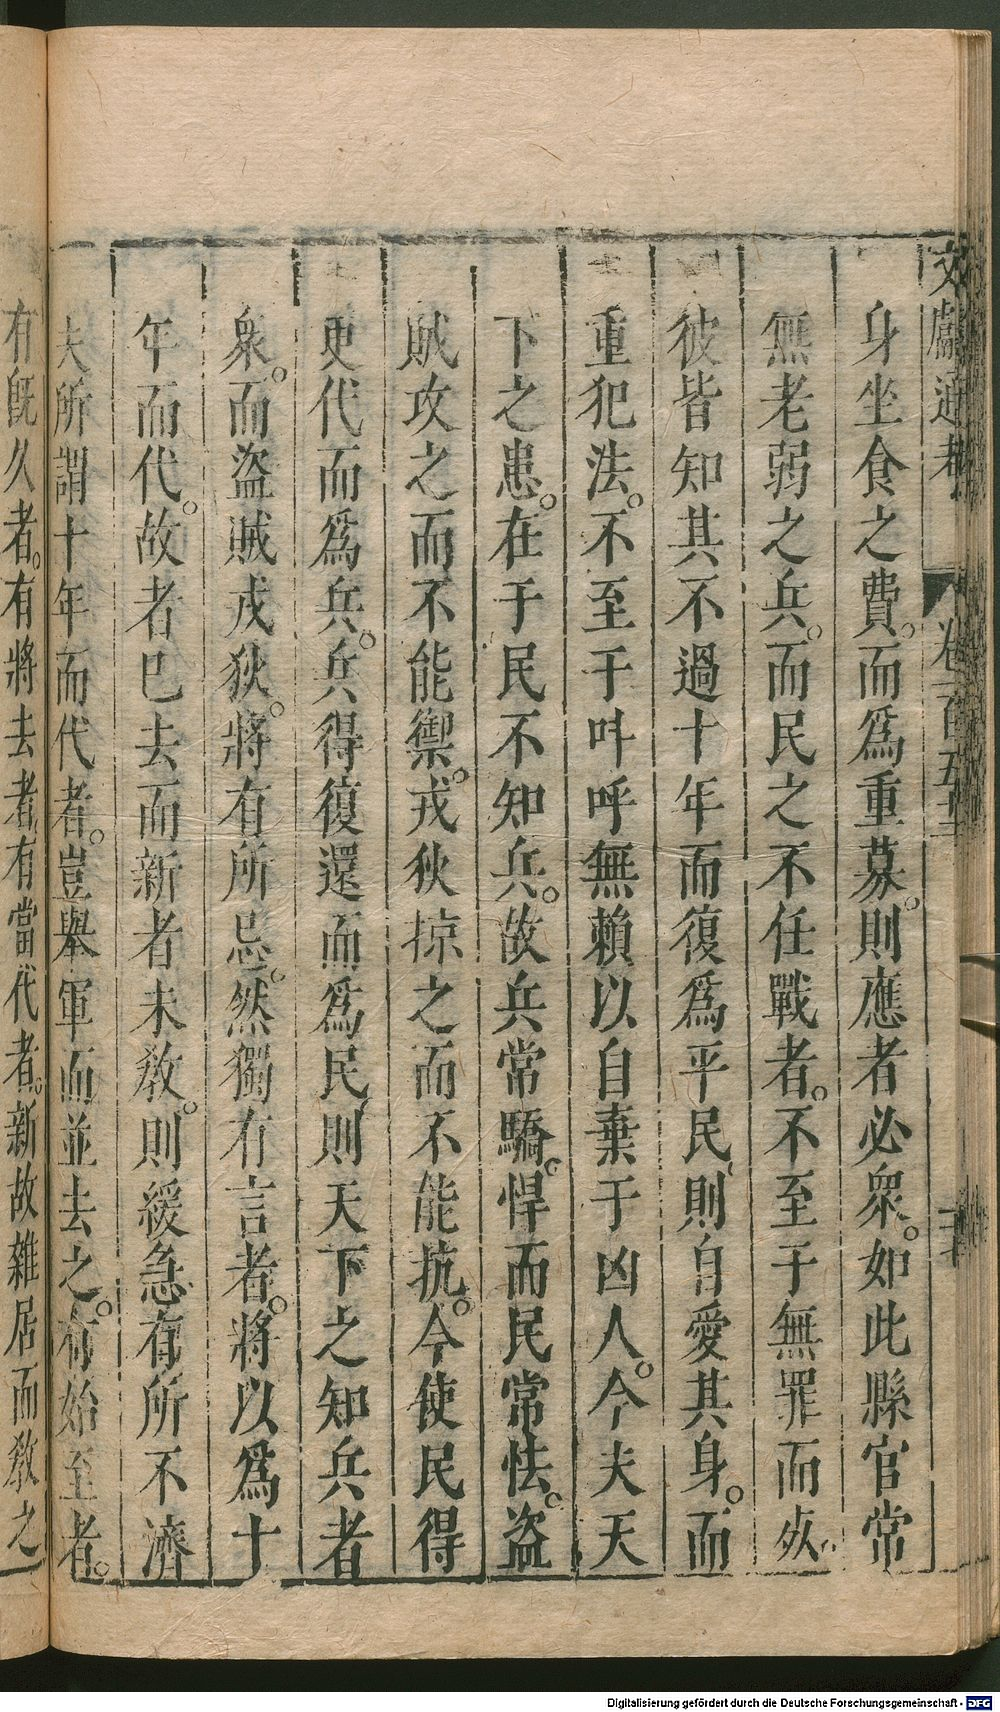 文獻通考 卷一百五十三
身坐食之費。而爲重募。則應者必衆。如此縣官常
無老弱之兵。而民之不任戰者。不至于無罪而死。
彼皆知其不過十年而復爲平民、則自愛其身。而
重犯法。不至于呌呼無賴以自棄于凶人。今夫天
下之患。在于民不知兵。故兵常驕悍。而民常怯。盗
賊攻之而不能禦。戎狄掠之而不能抗。今使民得
更代而爲兵。兵得復還而爲民、則天下之知兵者
衆。而盜賊戎狄。將有所忌。然獨有言者。將以爲十
年而代。故者已去而新者未教。則緩急有所不濟
夫所謂十年而代者。豈舉軍而並去之。有始至者。
有旣久者。有將去者、有當代者。新故雜居而教之
Digitalisierung gefördert durch die Deutsche Forschungsgemeinschaft - DFG